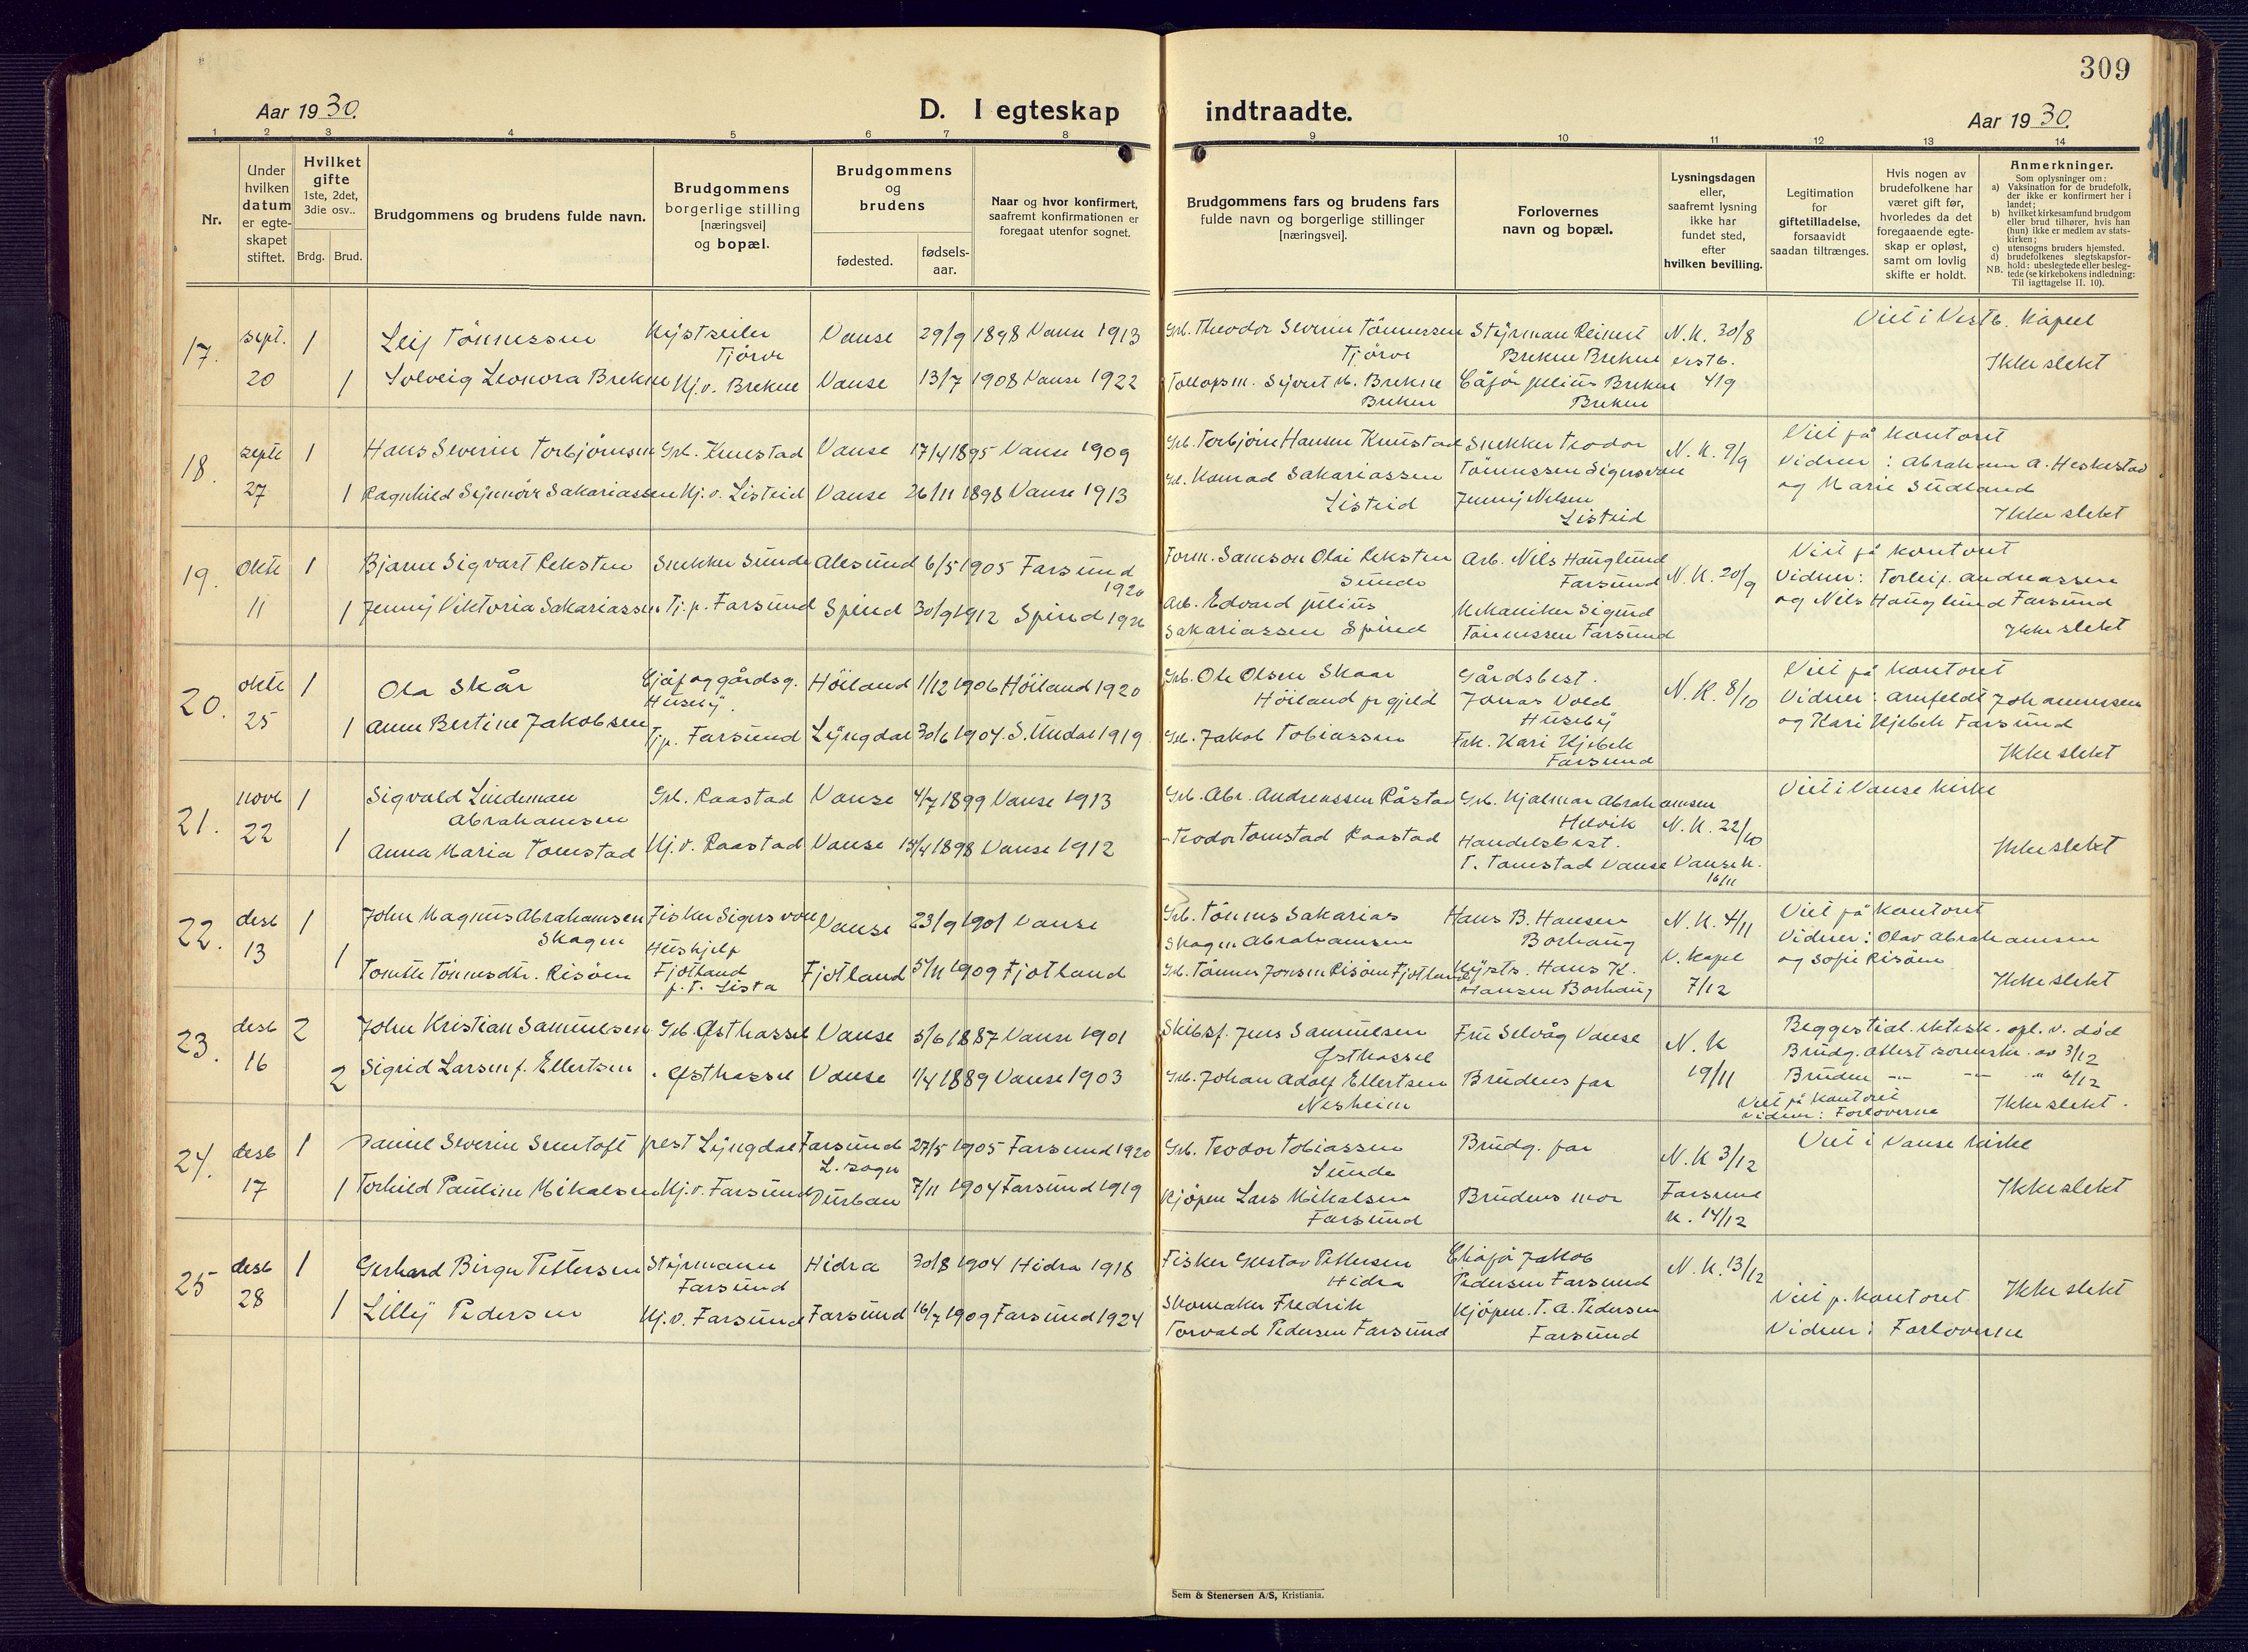 309
Aar 1930.
D. I egteskap indtraadte.
Aar 1930.
1 2 3 4 5 6 7 8 9 10 11 12 13 14
Nr.
Under hvilken datum er egteskapet stiftet.
Hvilket gifte 1ste, 2det, 3die osv..
Brdg. Brud.
Brudgommens og brudens fulde navn.
Brudgommens borgerlige stilling [næringsvei] og bopæl.
Brudgommens og brudens
fødested.
fødselsaar.
Naar og hvor konfirmert, saafremt konfirmationen er foregaat utenfor sognet.
Brudgommens fars og brudens fars fulde navn og borgerlige stillinger [næringsvei].
Forlovernes navn og bopæl.
Lysningsdagen eller, saafremt lysning ikke har fundet sted, efter hvilken bevilling.
Legitimation for giftetilladelse, forsaavidt saadan tiltrænges.
Hvis nogen av brudefolkene har været gift før, hvorledes da det foregaaende egteskap er opløst, samt om lovlig skifte er holdt.
Anmerkninger.
Som oplysninger om:
a) Vaksination for de brudefolk, der ikke er konfirmert her i landet;
b) hvilket kirkesamfund brudgom eller brud tilhører, hvis han (hun) ikke er medlem av statskirken;
c) utensogns bruders hjemsted.
d) brudefolkenes slegtskapsforhold: ubeslegtede eller beslegtede (se kirkebokens indledning: Til iagttagelse II. 10).
NB.
17. sept. 20 1 Leif Tönnessen Kystseiler Tjörve Vanse 29/9 1898 Vanse 1913
Grb. Theodor Severin Tönnessen Tjörve Styrman Reinert Brekne Brekne N.K. 30/8 Vestb. 4/9 Viet i Vestb. Kapel
1 Solveig Leonora Brekne Hj.v. Brekne Vanse 13/7 1908 Vanse 1922
Tollopsm. Sivert M. Brekne Brekne Julius Brekne Brekne Ikke slekt
18. septb 27 1 Hans Severin Torbjörnsen Grb. Knustad Vanse 17/4 1895 Vanse 1909
Grb. Torbjörn Hansen Knustad Snekker Teodor Tönnessen Sigersvoll N.K. 9/9 Viet på kontoret
Vidner: Abraham A. Heskestad og Marie Sudland
1 Ragnhild Synnöve Sakariassen Hj.v. Listeid Vanse 26/11 1898 Vanse 1913
Grb. Konrad Sakariassen Listeid Jenny Nilsen Listeid Ikke slekt
19. oktb 11 1 Bjarne Sigvart Reksten Snekker Sunde Alesund 6/5 1905 Farsund 1920
Form. Samson Olai Reksten Sunde Arb. Nils Hauglund Farsund N.K. 20/9 Viet på kontoret
Vidner: Torleif Andreassen og Nils Hauglund Farsund
1 Jenny Viktoria Sakariassen Tj.p. Farsund Spind 30/9 1912 Spind 1926
Arb. Edvard Julius Sakariassen Spind Mekaniker Sigurd Tönnessen Farsund Ikke slekt
20. oktb 25 1 Ola Skår gårdsg. Huseby. Höiland 1/12 1906 Höiland 1920
Grb. Ole Olsen Skaar Höiland pr gjeld Gårdsbest. Jonas Vold Huseby N.K. 8/10 Viet på kontoret
Vidner: Arnfeldt Johannessen og Kari Kjebek Farsund
1 Anne Bertine Jakobsen Tj.p. Farsund Lyngdal 30/6 1904. S. Undal 1919
Grb. Jakob Tobiassen Frk. Kari Kjebek Farsund Ikke slekt
21. novb 22 1 Sigvald Lindeman Abrahamsen Grb. Raastad Vanse 4/7 1899 Vanse 1913
Grb. Abr. Andreassen Råstad Grb. Hjalmar Abrahamsen Helvik N.K. 22/10 Viet i Vanse kirke
1 Anna Maria Tomstad Hj.v. Raastad Vanse 13/4 1898 Vanse 1912
- Teodor Tomstad Raastad Handelsbest. T. Tomstad Vanse Vanse k. 16/11 Ikke slekt
22. desb 13 1 John Magnus Abrahamsen Skagen Fisker Sigersvoll Vanse 23/9 1901 Vanse
Grb. Tönnes Sakarias Skagen Abrahamsen Hans B. Hansen Borhaug N.K. 4/11 Viet på kontoret
Vidner: Olav Abrahamsen og Sofie Risöen
1 Tomtte Tönnesdtr. Risöen Hushjelp Fjotland p.t. Lista Fjotland 5/11 1909 Fjotland
Grb. Tönnes Jonsen Risöen Fjotland Kysts. Hans K. Hansen Borhaug V. Kapel 7/12 Ikke slekt
23. desb 16 2 John Kristian Samuelsen Grb Østhassel Vanse 5/6 1887 Vanse 1901
Skibsf. Jens Samuelsen Østhassel Fru Selvåg Vanse N.K 19/11 Begges tidl. ektesk. opl. v. död
Brudg. attest sorenskr. av 3/12
2 Sigrid Larsen f. Ellertsen " Østhassel Vanse 1/4 1889 Vanse 1903
Grb. Johan Adolf Ellertsen Nesheim Brudens far Bruden -"- -"- " 6/12
Viet på kontoret Vidner: Forloverne Ikke slekt.
24. desb 17 1 Daniel Severin Suntoft prest Lyngdal Farsund L.sogn 27/5 1905 Farsund 1920
Grb. Teodor Tobiassen Sunde Brudg. far N.K 3/12 Viet i Vanse kirke
1 Torhild Pauline Mikalsen Hj.v. Farsund Durban 7/11 1904 Farsund 1919
Kjöpm Lars Mikalsen Farsund Brudens mor Farsund K. 14/12 Ikke slekt
25 desb 28 1 Gerhard Birger Pettersen Styrmann Farsund Hidra 30/8 1904 Hidra 1918
Fisker Gustav Pettersen Hidra Jakob Pedersen Farsund N.K. 13/12
1 Lilly Pedersen Hj.v. Farsund Farsund 16/7 1909 Farsund 1924
Skomaker Fredrik Torvald Pedersen Farsund Kjöpm. T. A. Pedersen Farsund Viet p. kontoret Vidner: Forloverne Ikke slekt
Sem & Stenersen A/S, Kristiania.